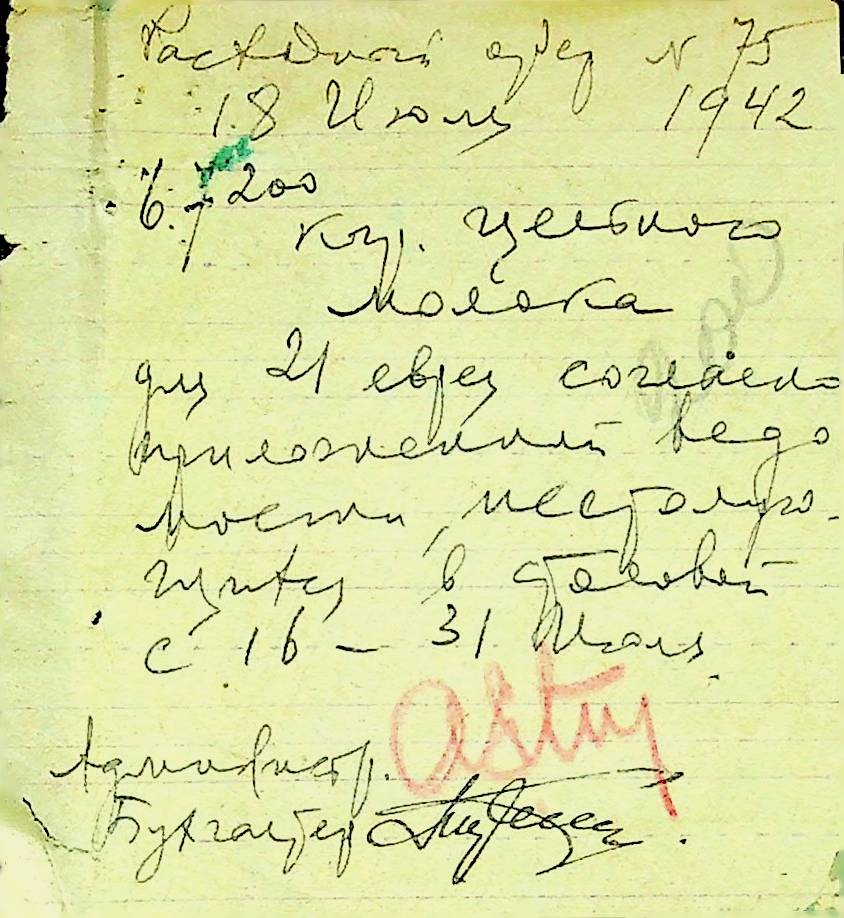 Расходный ордер N 75
18 Июля 1942
6.7 200
кгр. цельного
молока
для 21 еврея согласно
приложенной ведо
мости, нестолую-
щихся в столовой
с 16 – 31 Июля.
Администр.
Бухгалтер